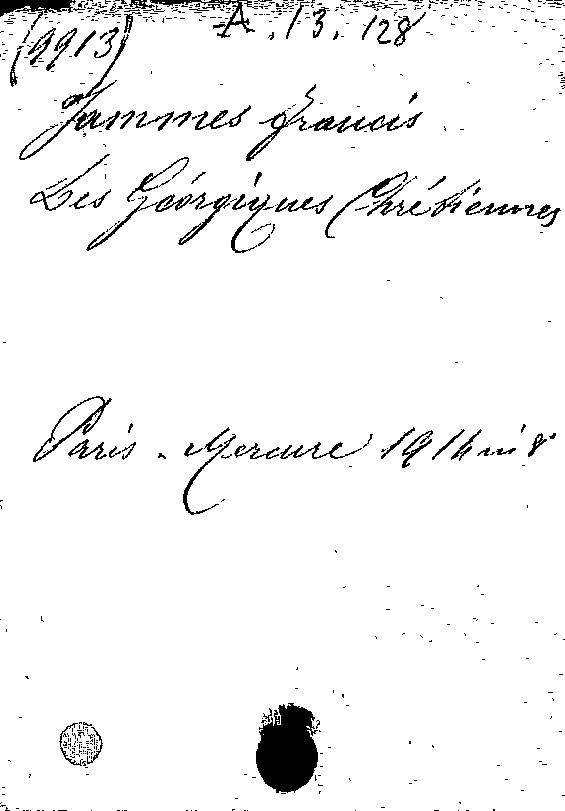 (9913) A.13.128
Jammes Francis
Les Géorgiques Chrétiennes
Paris - Mercure 1914 in 8°